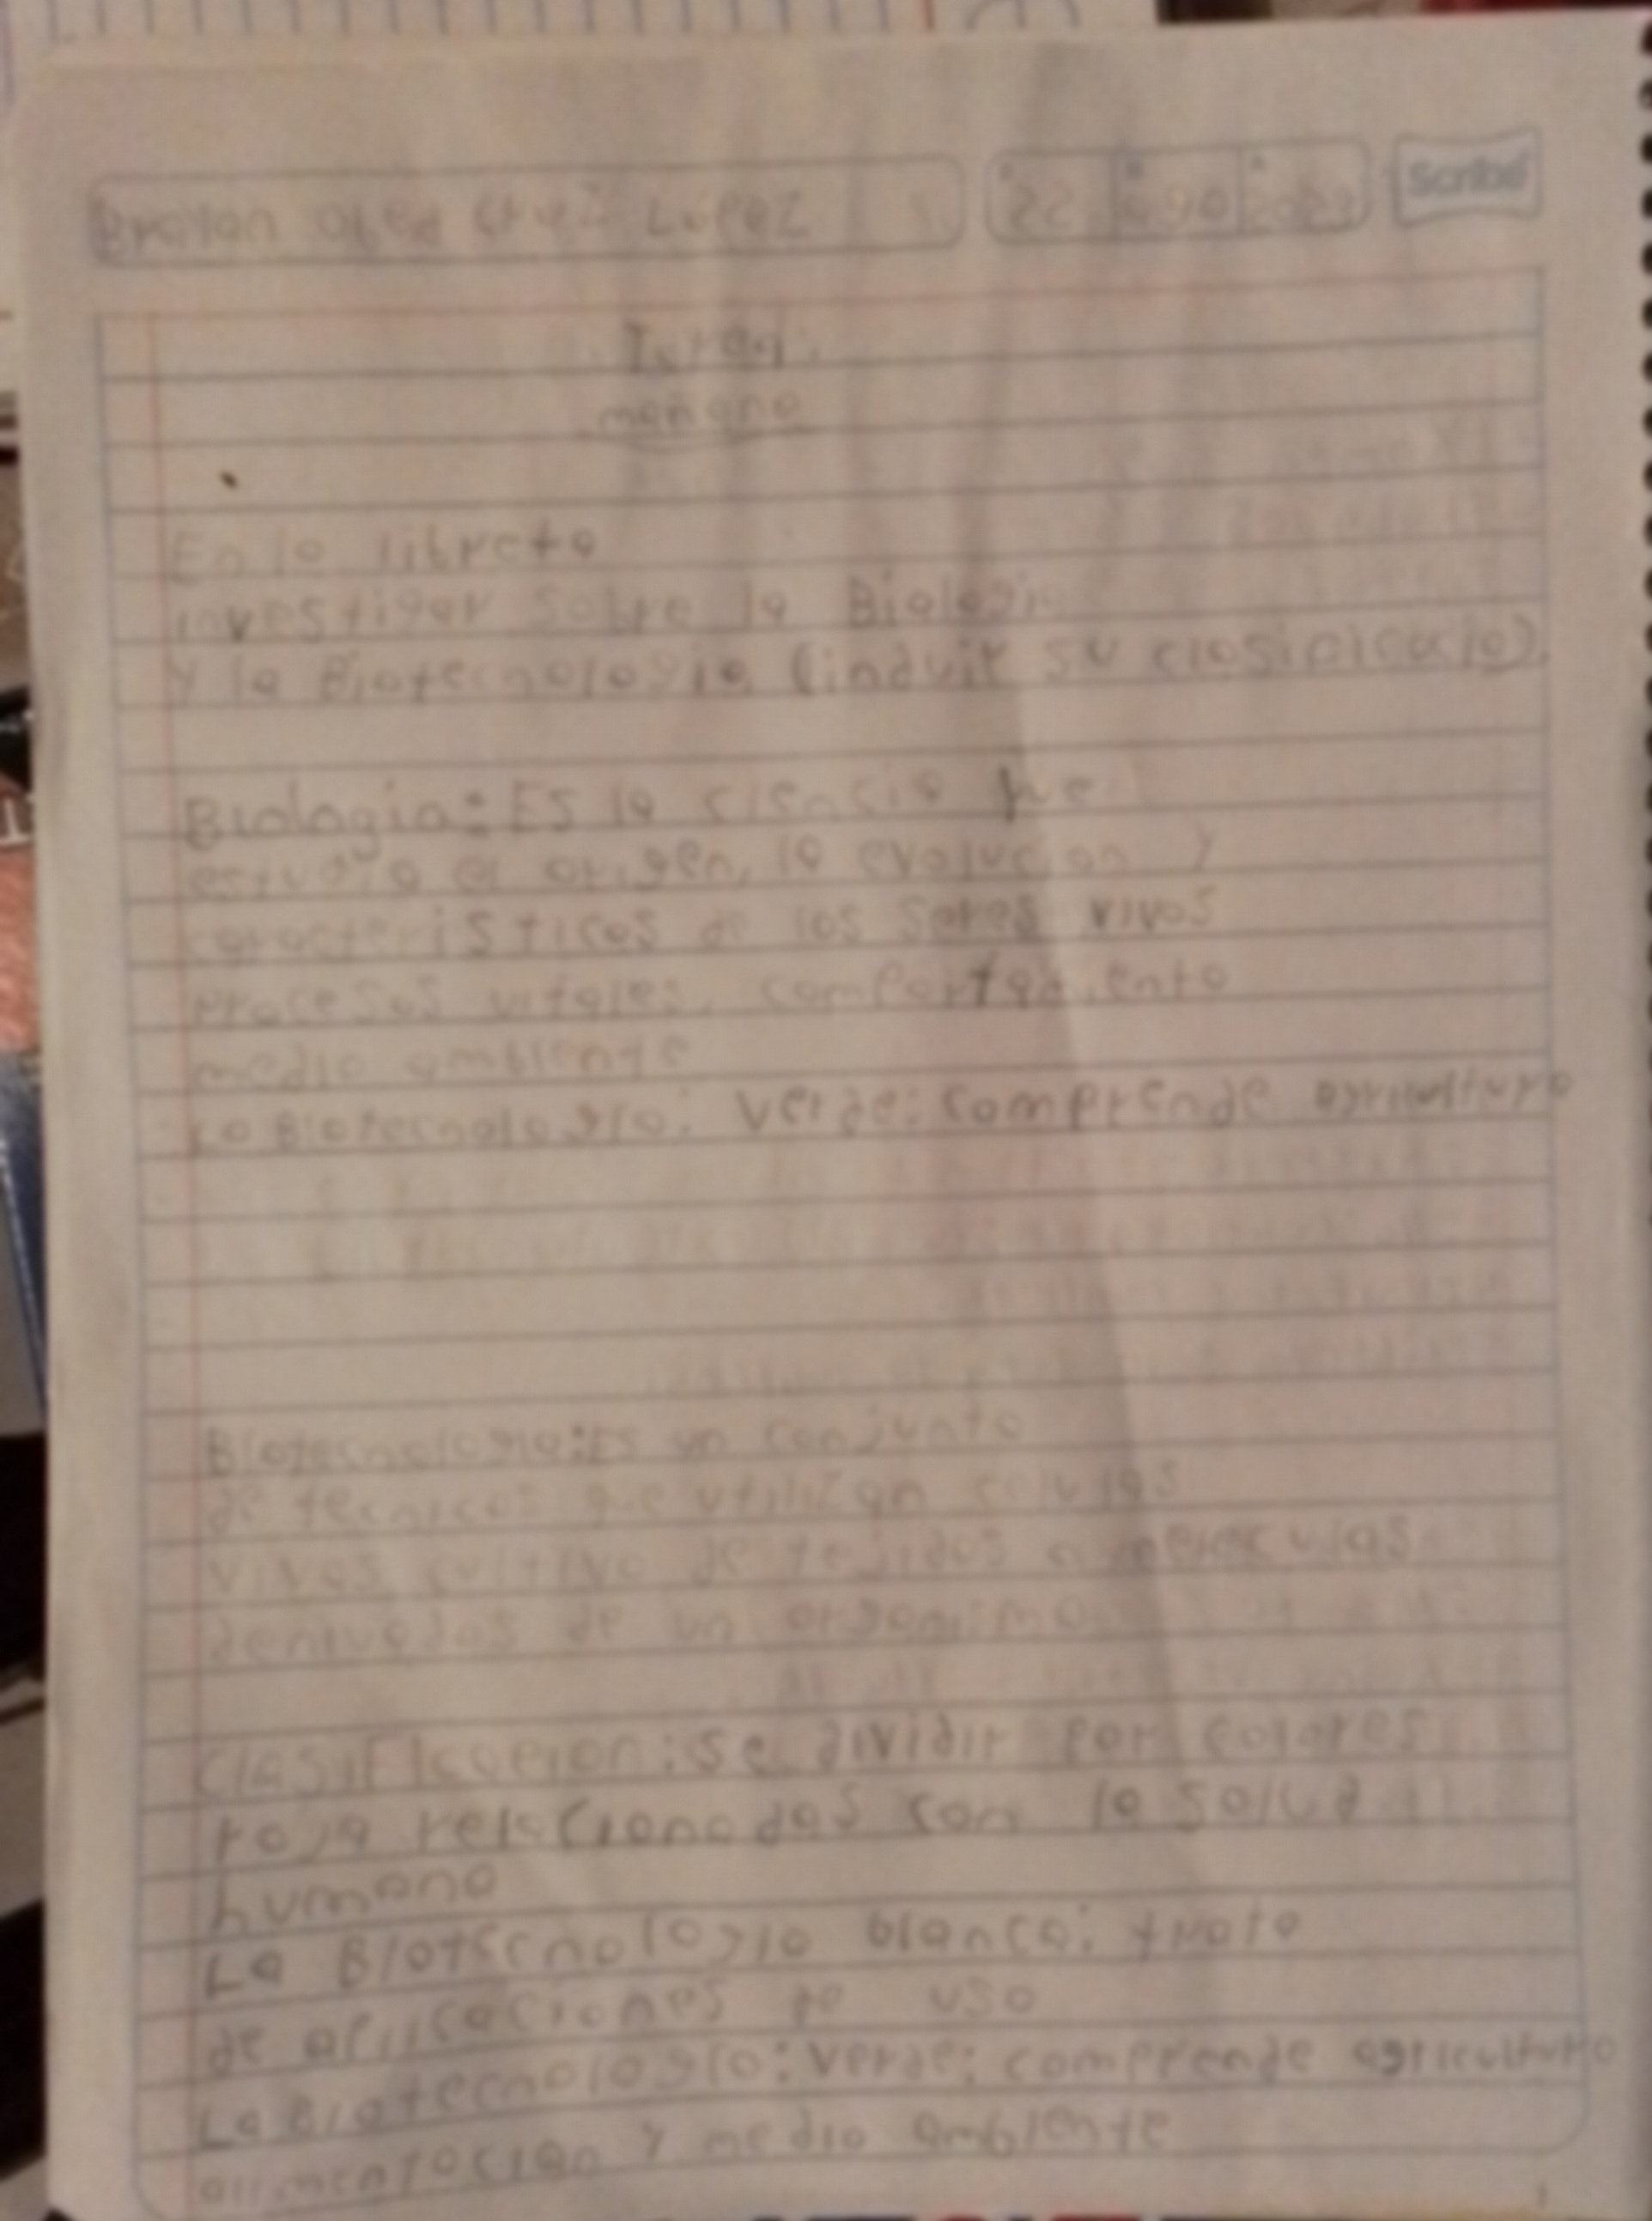 Brayan Cruz Lopez
Scribe
Tarea
mañana
En la libreta
investigar sobre la Biologia
y la Biotecnologia (induir su
Biologia: Es la ciencia que
estudia el origen, la evolucion y
caracteristicas de los seres vivos
procesos vitales, comportamiento
medio ambiente
La Biotecnologia: Verde: comprende agricultura
Biotecnologia: Es un conjunto
de tecnicas que utilizan celulas
vivas cultivo de tejidos o moleculas
derivados de un
Clasificacion: se dividir por colores
roja relacionadas con la salud
humana
La Biotecnologia blanca: trata
de aplicaciones de uso
La Biotecnologia: Verde: comprende agricultura
alimentacion y medio ambiente